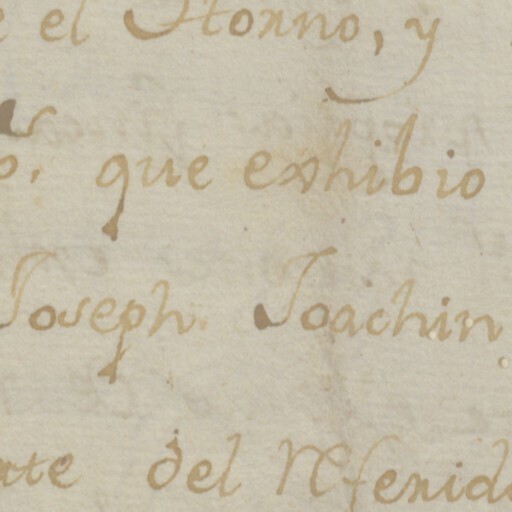 e el Horno, y
s. que exhibio
Joseph Joachin
ate del Referid